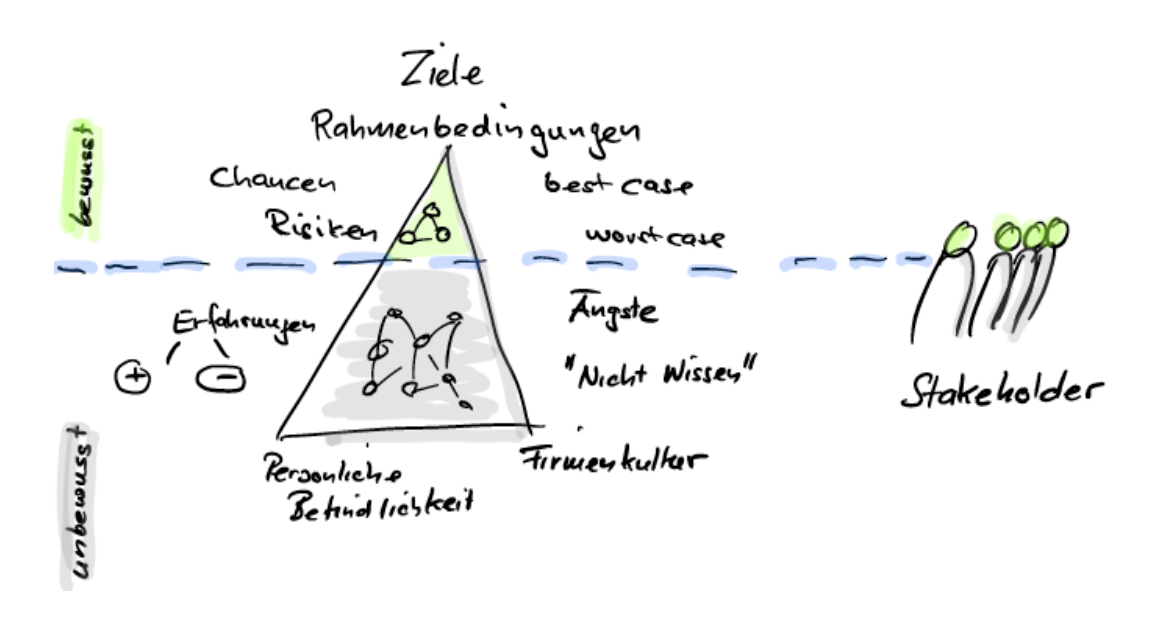 Ziele
Rahmenbedingungen
bewusst
Chancen
best case
Risiken
worst case
Erfahrungen
Ängste
+ -
"Nicht Wissen"
Stakeholder
unbewusst
Persönliche
Firmenkultur
Befindlichkeit